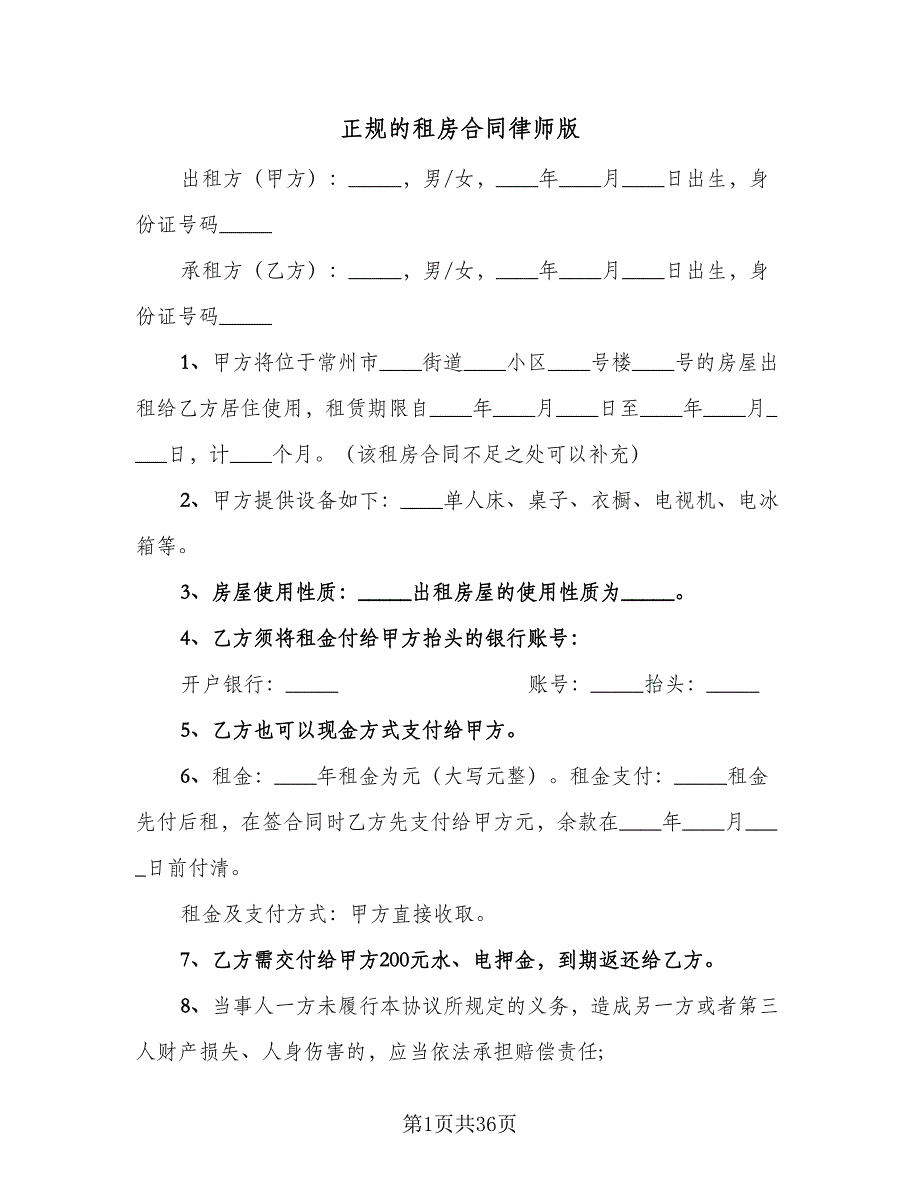 正规的租房合同律师版
出租方（甲方）：_____，男/女，____年____月____日出生，身
份证号码_____
承租方（乙方）：_____，男/女，____年____月____日出生，身
份证号码_____
1、甲方将位于常州市____街道____小区____号楼____号的房屋出
租给乙方居住使用，租赁期限自____年____月____日至____年____月_
___日，计____个月。（该租房合同不足之处可以补充）
2、甲方提供设备如下：____单人床、桌子、衣橱、电视机、电冰
箱等。
3、房屋使用性质：_____出租房屋的使用性质为_____。
4、乙方须将租金付给甲方抬头的银行账号：
开户银行：_____ 账号：_____抬头：_____
5、乙方也可以现金方式支付给甲方。
6、租金：____年租金为元（大写元整）。租金支付：_____租金
先付后租，在签合同时乙方先支付给甲方元，余款在____年____月___
_日前付清。
租金及支付方式：甲方直接收取。
7、乙方需交付给甲方200元水、电押金，到期返还给乙方。
8、当事人一方未履行本协议所规定的义务，造成另一方或者第三
人财产损失、人身伤害的，应当依法承担赔偿责任;
第1页共36页